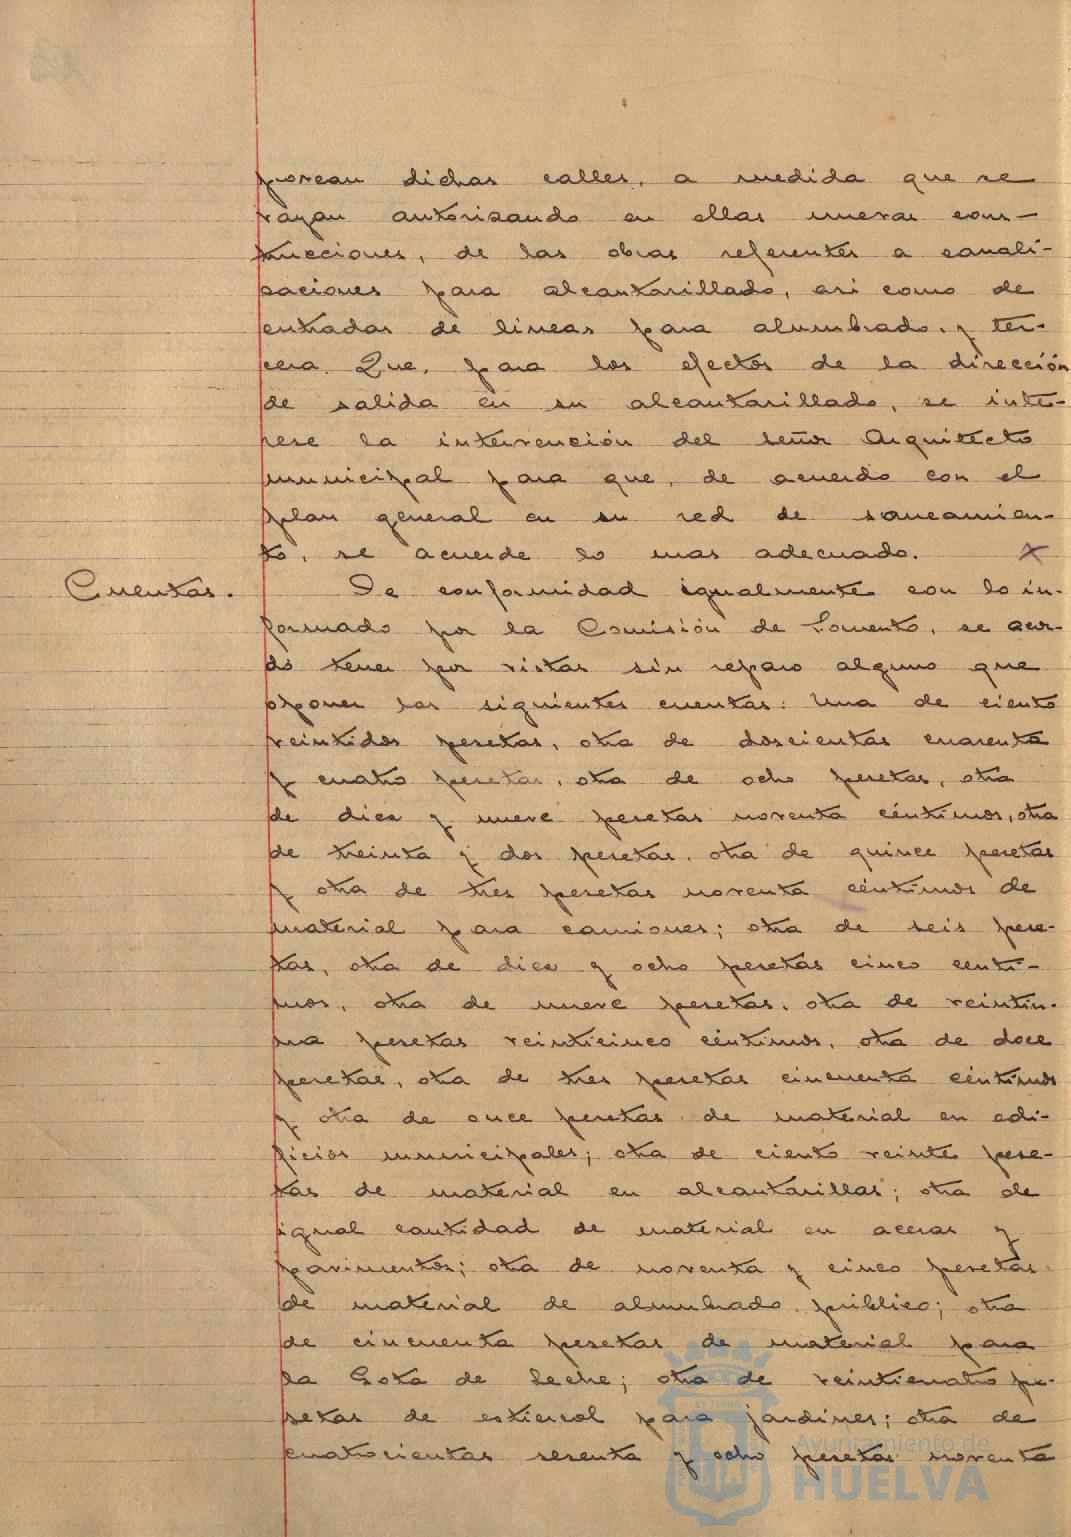 porcan dichas calles, a medida que se
vayan autorizando en ellas nuevas cons-
trucciones, de las obras referentes a canali-
zaciones para alcantarillado, asi como de
entradas de lineas para alumbrado. y ter-
cera. Que, para los efectos de la dirección
de salida en su alcantarillado, se inte-
rese la intervención del señor Arquitecto
municipal para que, de acuerdo con el
plan general en su red de saneamien-
to, se acuerde lo mas adecuado.
Cuentas. De conformidad igualmente con lo in-
formado por la Comisión de Fomento, se acor-
dó tener por vistas sin reparo alguno que
oponer las siguientes cuentas: Una de ciento
veintidos pesetas, otra de doscientas cuarenta
y cuatro pesetas, otra de ocho pesetas, otra
de diez y nueve pesetas noventa céntimos, otra
de treinta y dos pesetas, otra de quince pesetas
y otra de tres pesetas noventa céntimos de
material para camiones; otra de seis pese-
tas, otra de diez y ocho pesetas cinco centi-
mos, otra de nueve pesetas, otra de veintiu-
na pesetas veinticinco céntimos, otra de doce
pesetas, otra de tres pesetas cincuenta céntimos
y otra de once pesetas de material en edi-
ficios municipales; otra de ciento veinte pese-
tas de material en alcantarillas; otra de
igual cantidad de material en aceras y
pavimentos; otra de noventa y cinco pesetas
de material de alumbrado público; otra
de cincuenta pesetas de material para
la Gota de Leche; otra de veinticuatro pe-
setas de estiercol para jardines; otra de
cuatrocientas sesenta y ocho pesetas noventa
Ayuntamiento de
HUELVA